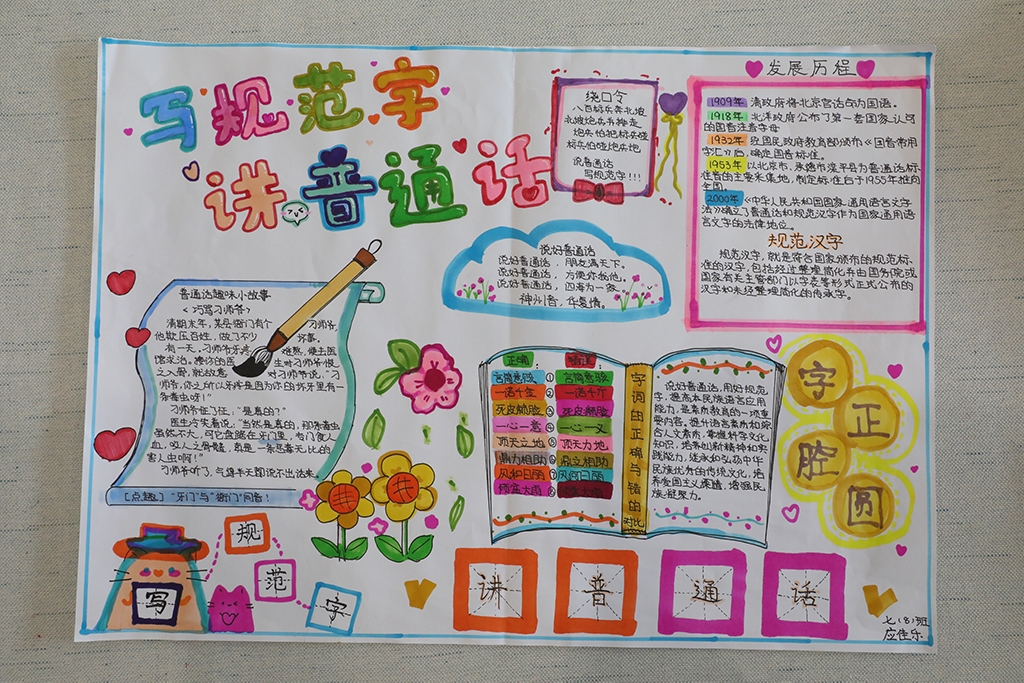 写规范字
讲普通话
绕口令
八百标兵奔北坡
北坡炮兵并排走
炮兵怕把标兵碰
标兵怕碰炮兵炮
说普通话
写规范字!!!
发展历程
1909年 清政府将北京官话命为国语。
1918年 北洋政府公布了第一套国家认可
的国音注音字母
1932年 经国民政府教育部颁布《国音常用
字汇》后,确定国音标准。
1953年 以北京市、承德市滦平县为普通话标
准音的主要采集地,制定标准后于1955年推向
全国。
2000年《中华人民共和国国家通用语言文字
法》确立了普通话和规范汉字作为国家通用语
言文字的法律地位。
规范汉字
规范汉字,就是符合国家颁布的规范标
准的汉字,包括经过整理简化并由国务院或
国家有关主管部门以字表等形式正式公布的
汉字和未经整理简化的传承字。
说好普通话
说好普通话,朋友满天下。
说好普通话,方便你我他。
说好普通话,四海为一家。
神州音,华夏情。
普通话趣味小故事
<巧骂刁师爷>
清朝末年,某县衙门有个刁师爷,
他欺压百姓,做了不少坏事。
有一天,刁师爷牙疼难熬,便去医
馆求治。接诊的医生对刁师爷恨
之入骨,就故意对刁师爷说:"刁
师爷,你之所以牙疼是因为你的坏牙里有一
条毒虫呀!"
刁师爷怔了怔:"是真的?"
医生冷笑着说:"当然是真的,那条毒虫
虽然不大,可它盘踞在牙门里,专门食人
血,咬人之骨髓,真是一条恶毒无比的
害人虫啊!"
刁师爷听了,气得半天都说不出话来。
[点趣]:"牙门"与"衙门"同音!
正确 错误
言简意赅 ① 言简意骇
一诺千金 ②
死皮赖脸 ③ 死皮癞脸
一心一意 ④ 一心一义
顶天立地 ⑤ 顶天力地
鼎力相助 ⑥ 鼎立相助
风和日丽 ⑦
倾盆大雨 ⑧
字词的正确与错的对比
说好普通话,用好规范
字,提高本民族语言应用
能力,是素质教育的一项重
要内容。提升语言素质和综
合人文素质,掌握科学文化
知识,培养创新精神和实
践能力,继承和弘扬中华
民族优秀的传统文化,培
养爱国主义情操,增强民
族凝聚力。
字正腔圆
写规范字
讲普通话
七(8)班
应佳乐